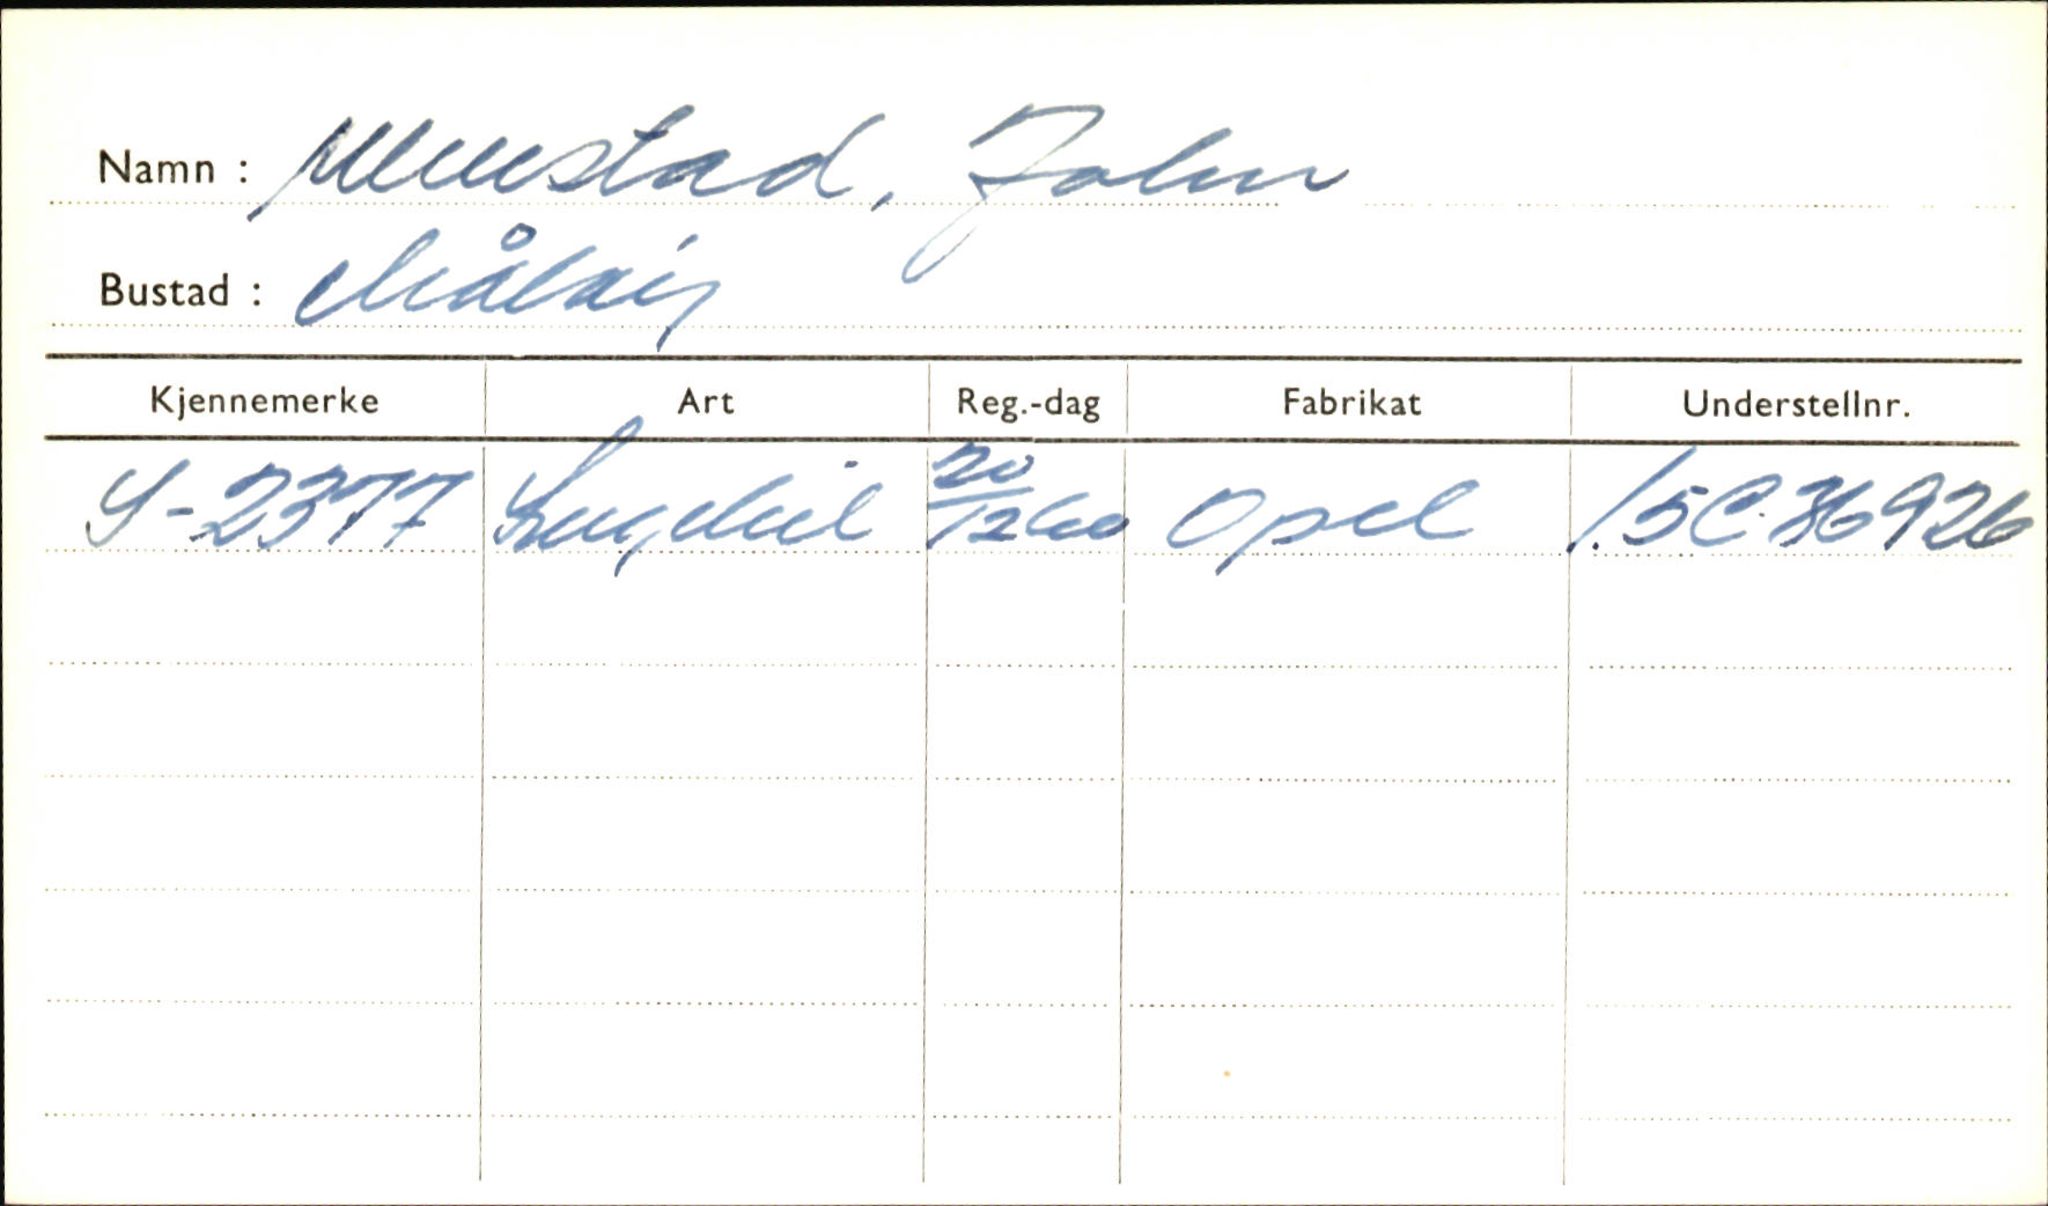 Namn : Munstad, John
Bustad : Måløy
Kjennemerke Art Reg.-dag Fabrikat Understellnr.
S-2377 20/12 60 Opel 1.5C.36926